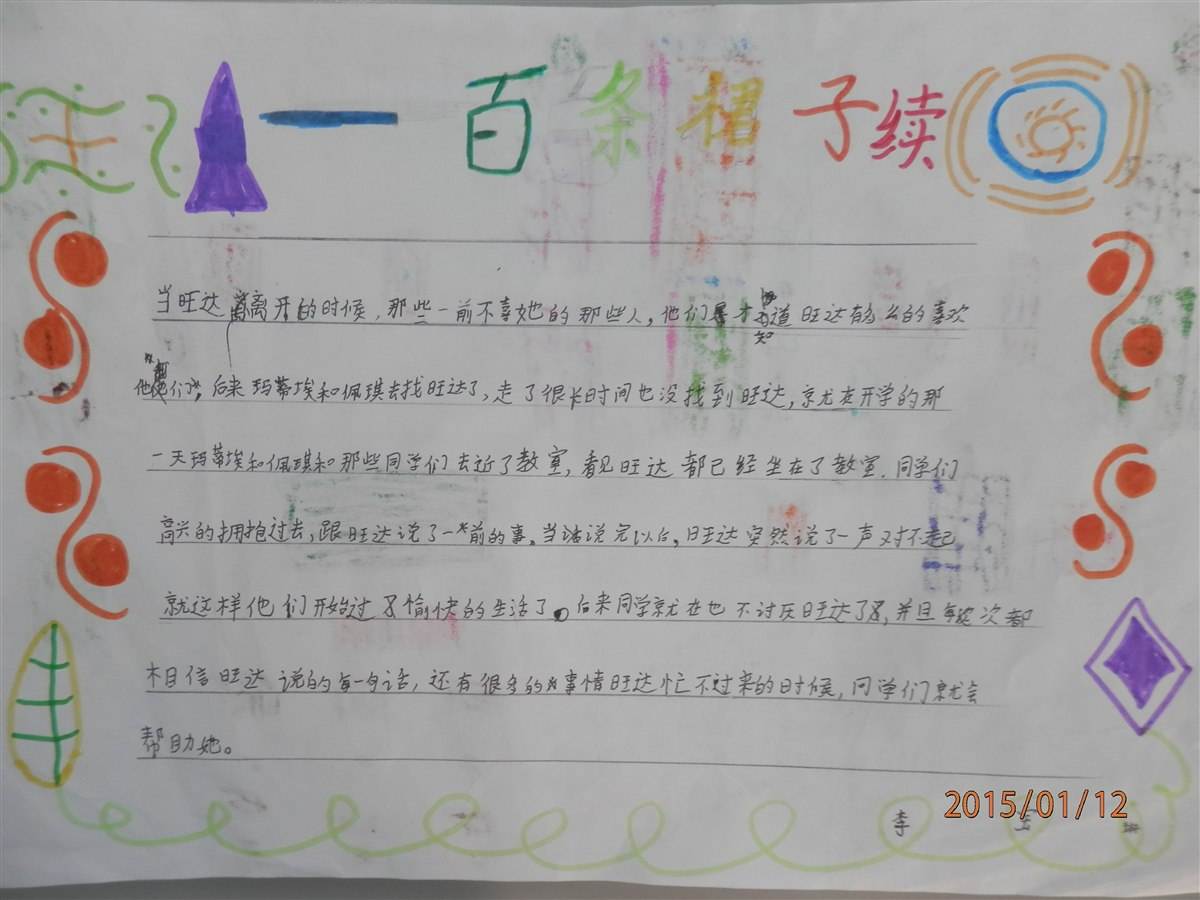 一百条裙子续
当旺达离开的时候,那些一前不喜她的那些人,他们是才知道旺达有多么的喜欢
他们,后来玛蒂埃和佩琪去找旺达了,走了很长时间也没找到旺达,就在开学的那
一天玛蒂埃和佩琪和那些同学们去近了教室,看见旺达都已经坐在了教室.同学们
高兴的拥抱过去,跟旺达说了一前的事,当话说完以后,旺达突然说了一声对不起
就这样他们开始过愉快的生活了。后来同学就在也不讨厌旺达了,并且每次都
相信旺达说的每一句话,还有很多的事情旺达忙不过来的时候,同学们就会
帮助她。
李
2015/01/12